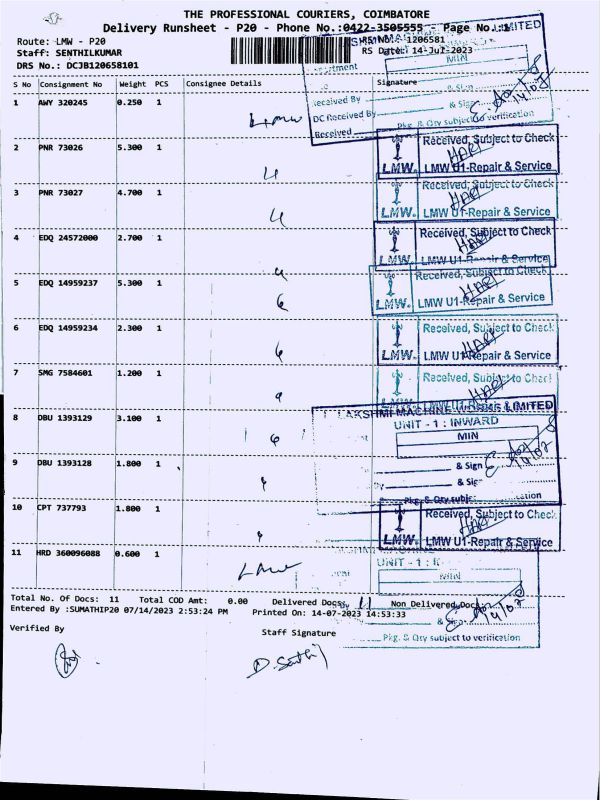 THE PROFESSIONAL COURIERS, COIMBATORE
Delivery Runsheet - P20 - Phone No.:0422-3505555 - Page No.:1
Route: LMW - P20
RS No.: 1206581
Staff: SENTHILKUMAR
RS Date: 14-Jul-2023
DRS No.: DCJB120658101
MIN
S No Consignment No Weight PCS Consignee Details Signature
1 AWY 320245 0.250 1 LMW
Received By
& Sign
DC Received By
Received
Pkg. & Qty subject to verification
2 PNR 73026 5.300 1 Received, Subject to Check
HARI
LMW. LMW U1-Repair & Service
3 PNR 73027 4.700 1 Received, Subject to Check
HARI
LMW. LMW U1-Repair & Service
4 EDQ 24572000 2.700 1 Received, Subject to Check
HARI
LMW. LMW U1-Repair & Service
5 EDQ 14959237 5.300 1 Received, Subject to Check
HARI
LMW. LMW U1-Repair & Service
6 EDQ 14959234 2.300 1 Received, Subject to Check
HARI
LMW. LMW U1-Repair & Service
7 SMG 7584601 1.200 1 Received, Subject to Check
HARI
LAKSHMI MACHINE WORKS LIMITED
8 DBU 1393129 3.100 1 UNIT - 1 : INWARD
MIN
9 DBU 1393128 1.800 1 & Sign
& Sign
Pkg. & Qty subject
10 CPT 737793 1.800 1 Received, Subject to Check
HARI
LMW. LMW U1-Repair & Service
11 HRD 360096088 0.600 1 LMW
UNIT - 1 :
MIN
Total No. Of Docs: 11 Total COD Amt: 0.00 Delivered Docs: 11 Non Delivered Docs:
Entered By :SUMATHIP20 07/14/2023 2:53:24 PM Printed On: 14-07-2023 14:53:33
& Sign
Verified By
Staff Signature
Pkg. & Qty subject to verification
D. Senthil